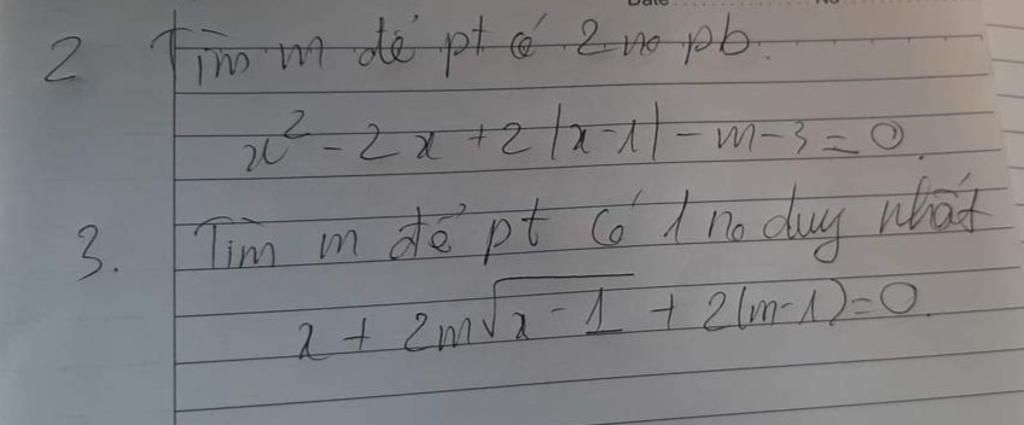 Date No
2 Tìm m để pt có 2 no pb.
x² - 2x + 2|x-1| - m - 3 = 0.
3. Tìm m để pt có 1 no duy nhất
x + 2m√(x - 1) + 2(m-1) = 0.